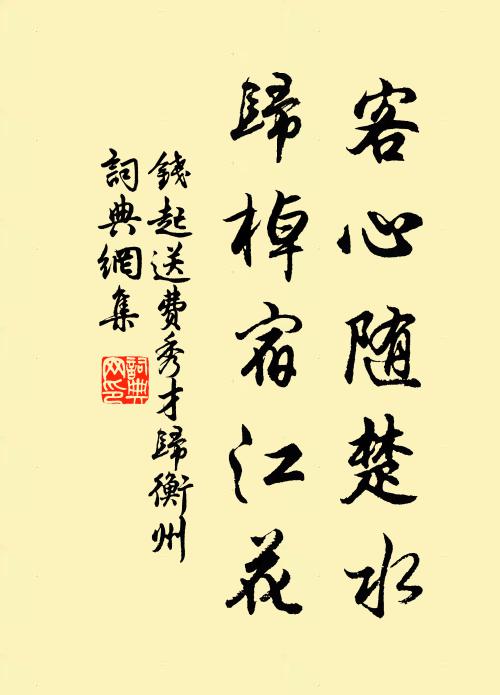 客心随楚水
歸棹宿江花
錢起送費秀才歸衡州
詞典網集
詞典网印